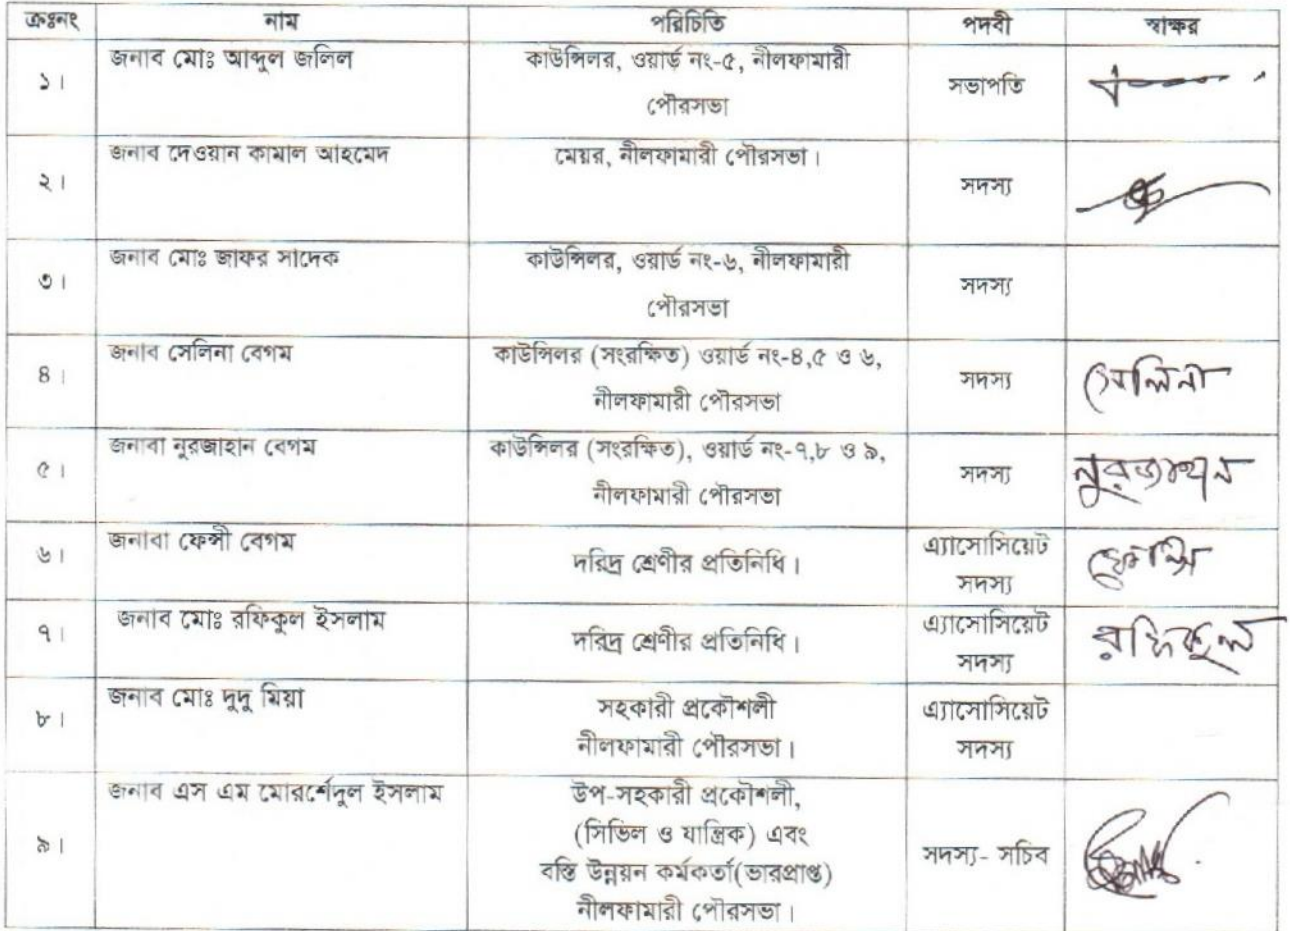 ক্রঃনং নাম পরিচিতি পদবী স্বাক্ষর
১। জনাব মোঃ আব্দুল জলিল কাউন্সিলর, ওয়ার্ড নং-৫, নীলফামারী
পৌরসভা সভাপতি
২। জনাব দেওয়ান কামাল আহমেদ মেয়র, নীলফামারী পৌরসভা। সদস্য
৩। জনাব মোঃ জাফর সাদেক কাউন্সিলর, ওয়ার্ড নং-৬, নীলফামারী
পৌরসভা সদস্য
৪। জনাব সেলিনা বেগম কাউন্সিলর (সংরক্ষিত) ওয়ার্ড নং-৪,৫ ও ৬,
নীলফামারী পৌরসভা সদস্য সেলিনা
৫। জনাবা নুরজাহান বেগম কাউন্সিলর (সংরক্ষিত), ওয়ার্ড নং-৭,৮ ও ৯,
নীলফামারী পৌরসভা সদস্য নুরজাহান
৬। জনাবা ফেন্সী বেগম দরিদ্র শ্রেণীর প্রতিনিধি। এ্যাসোসিয়েট
সদস্য ফেন্সি
৭। জনাব মোঃ রফিকুল ইসলাম দরিদ্র শ্রেণীর প্রতিনিধি। এ্যাসোসিয়েট
সদস্য রফিকুল
৮। জনাব মোঃ দুদু মিয়া সহকারী প্রকৌশলী
নীলফামারী পৌরসভা। এ্যাসোসিয়েট
সদস্য
৯। জনাব এস এম মোরর্শেদুল ইসলাম উপ-সহকারী প্রকৌশলী,
(সিভিল ও যান্ত্রিক) এবং
বস্তি উন্নয়ন কর্মকর্তা(ভারপ্রাপ্ত)
নীলফামারী পৌরসভা। সদস্য- সচিব